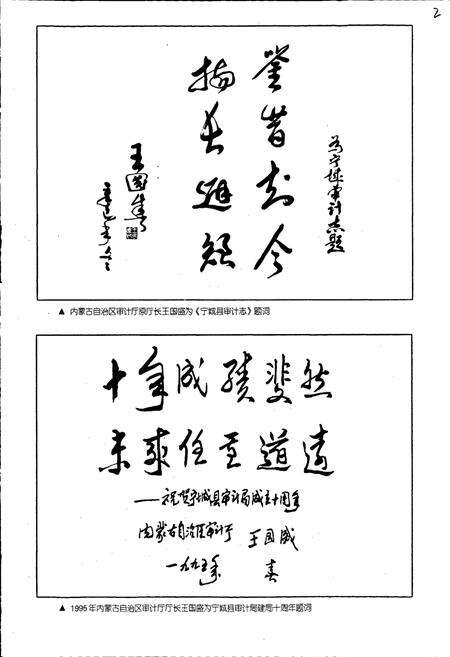 2
为宁城审计志题
鉴昔知今
扬长避短
王国盛
▲ 内蒙古自治区审计厅原厅长王国盛为《宁城县审计志》题词
十年成绩斐然
未来任重道远
——祝贺宁城县审计局成立十周年
内蒙古自治区审计厅 王国盛
一九九五年 春
▲ 1995年内蒙古自治区审计厅厅长王国盛为宁城县审计局建局十周年题词